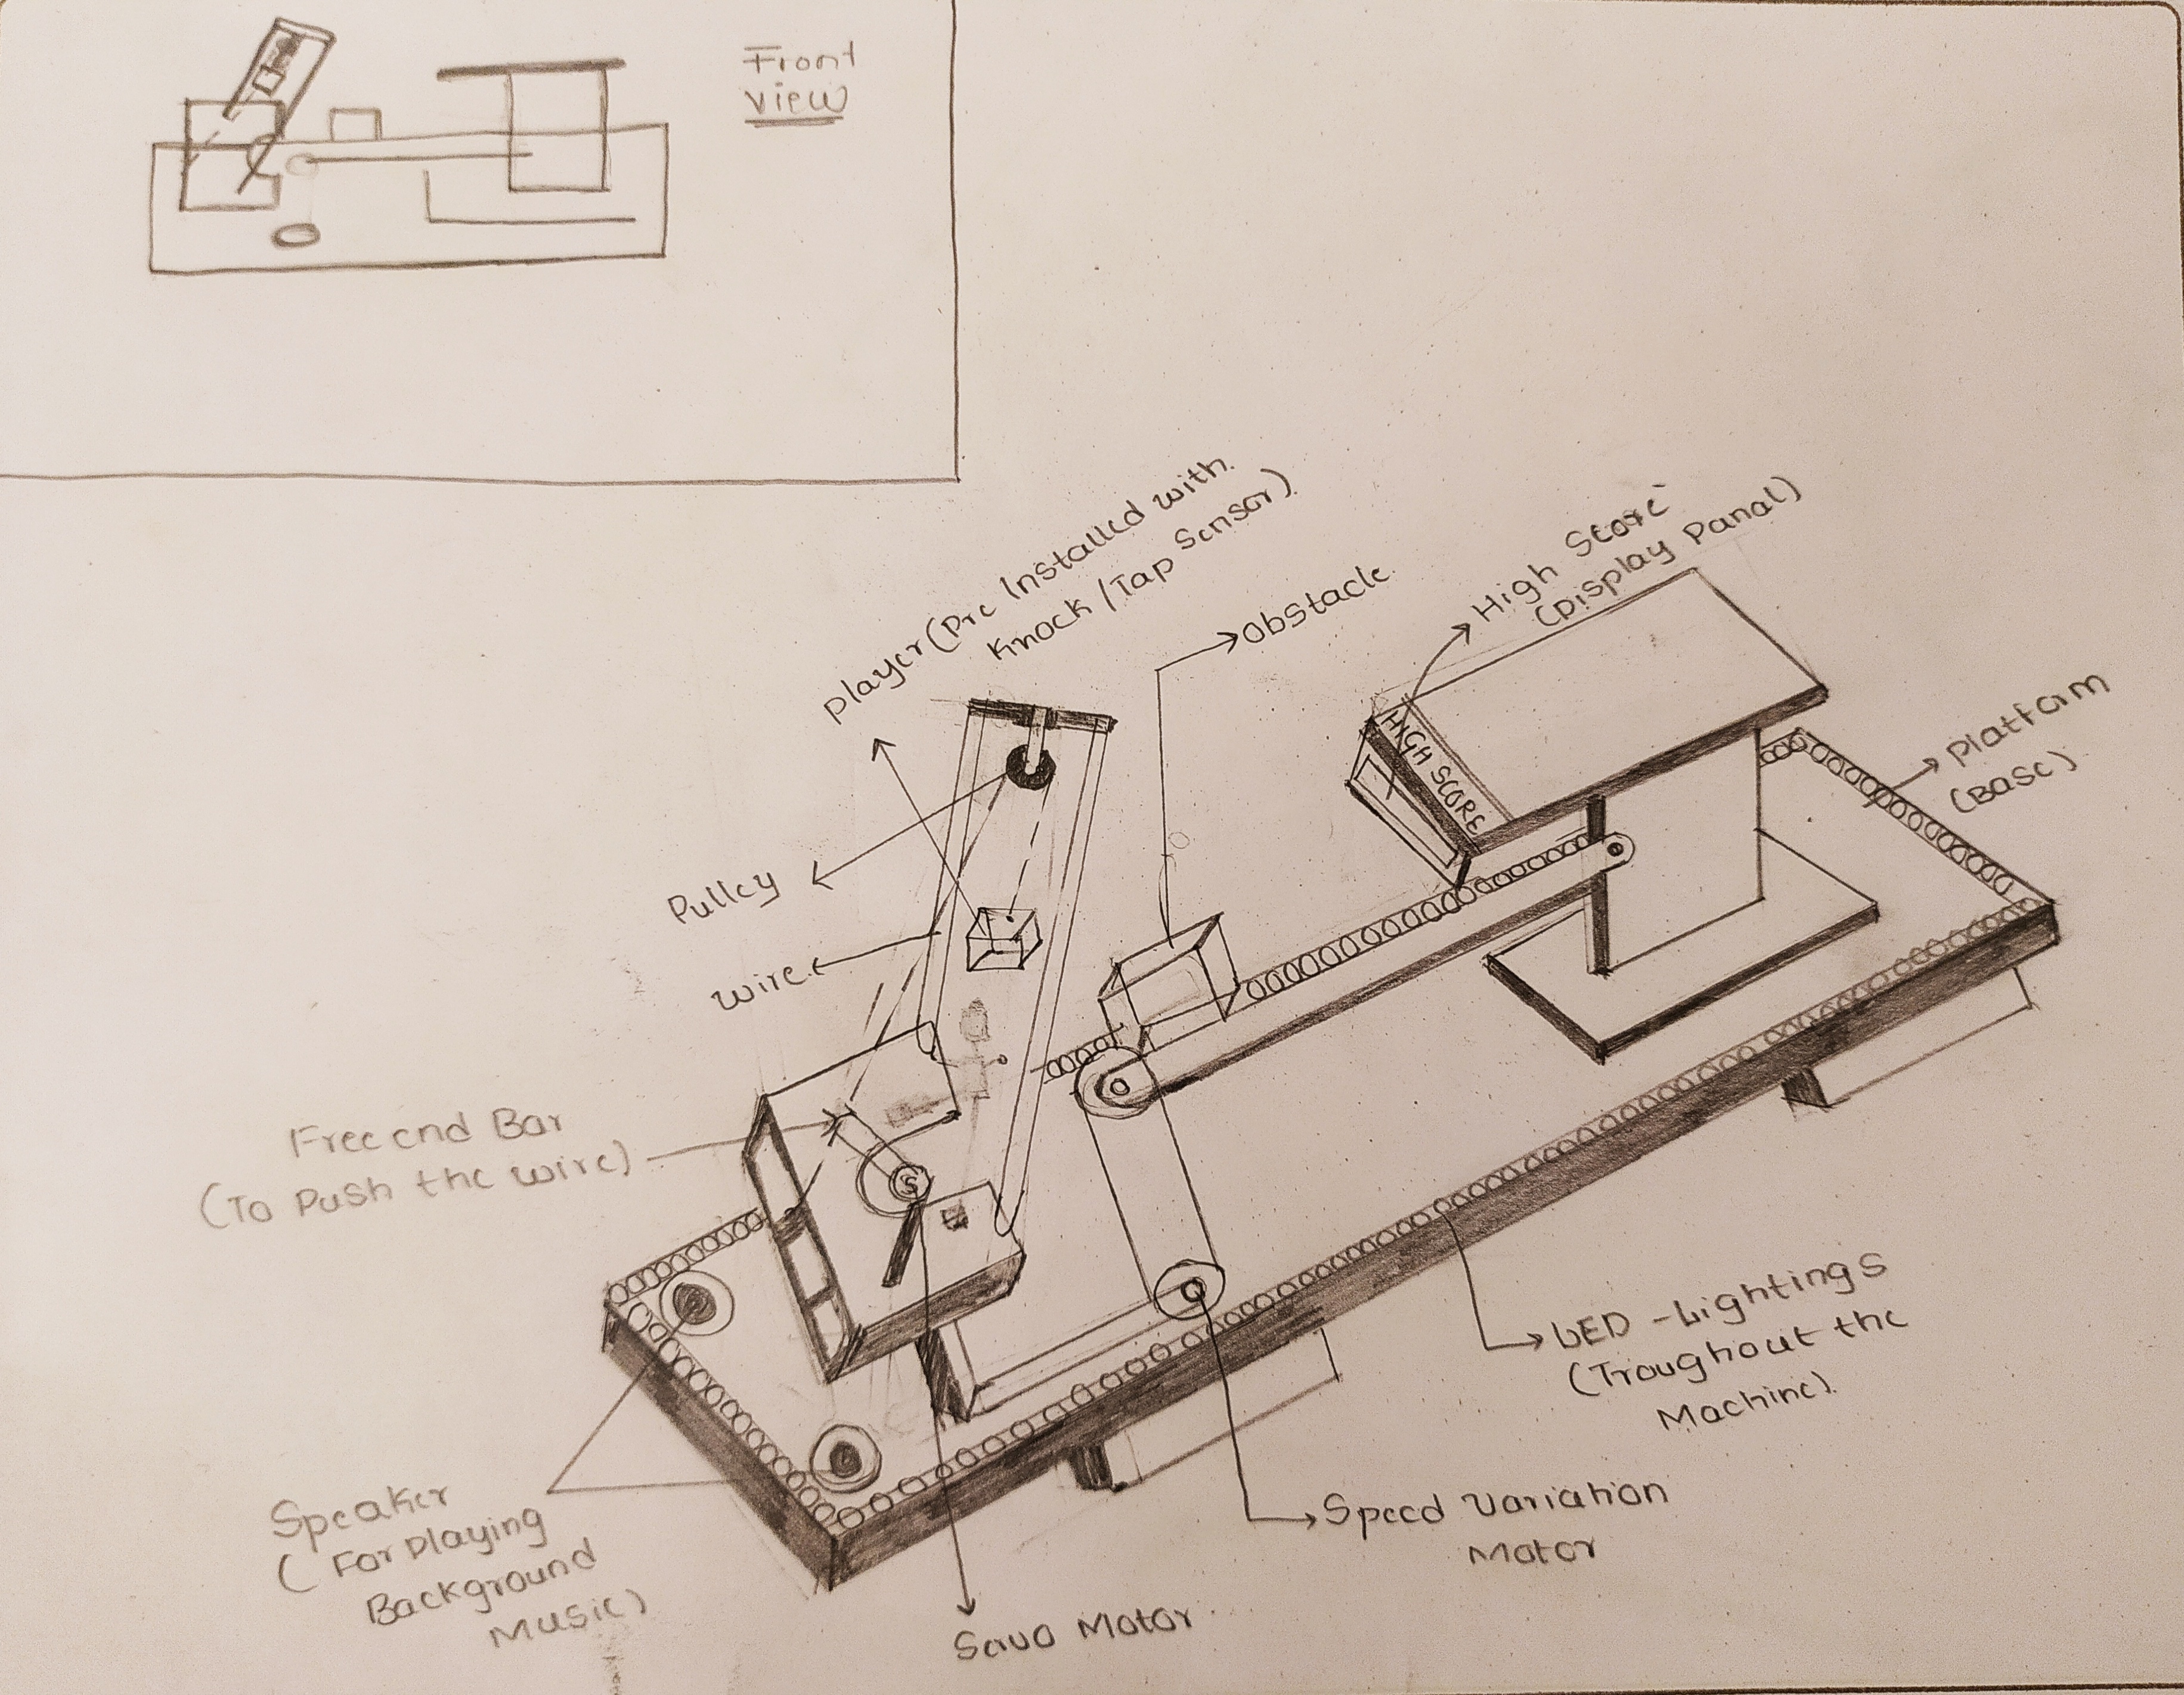 Front
View
Player (Pre Installed with
Knock/Tap Sensor)
Obstacle
High Score
(Display Panal)
HIGH SCORE
Platform
(Base)
Pulley
Wire
Free end Bar
(To Push the wire)
LED - Lightings
(Troughout the
Machine)
Speaker
(For Playing
Background
Music)
Speed Variation
Motor
Servo Motor